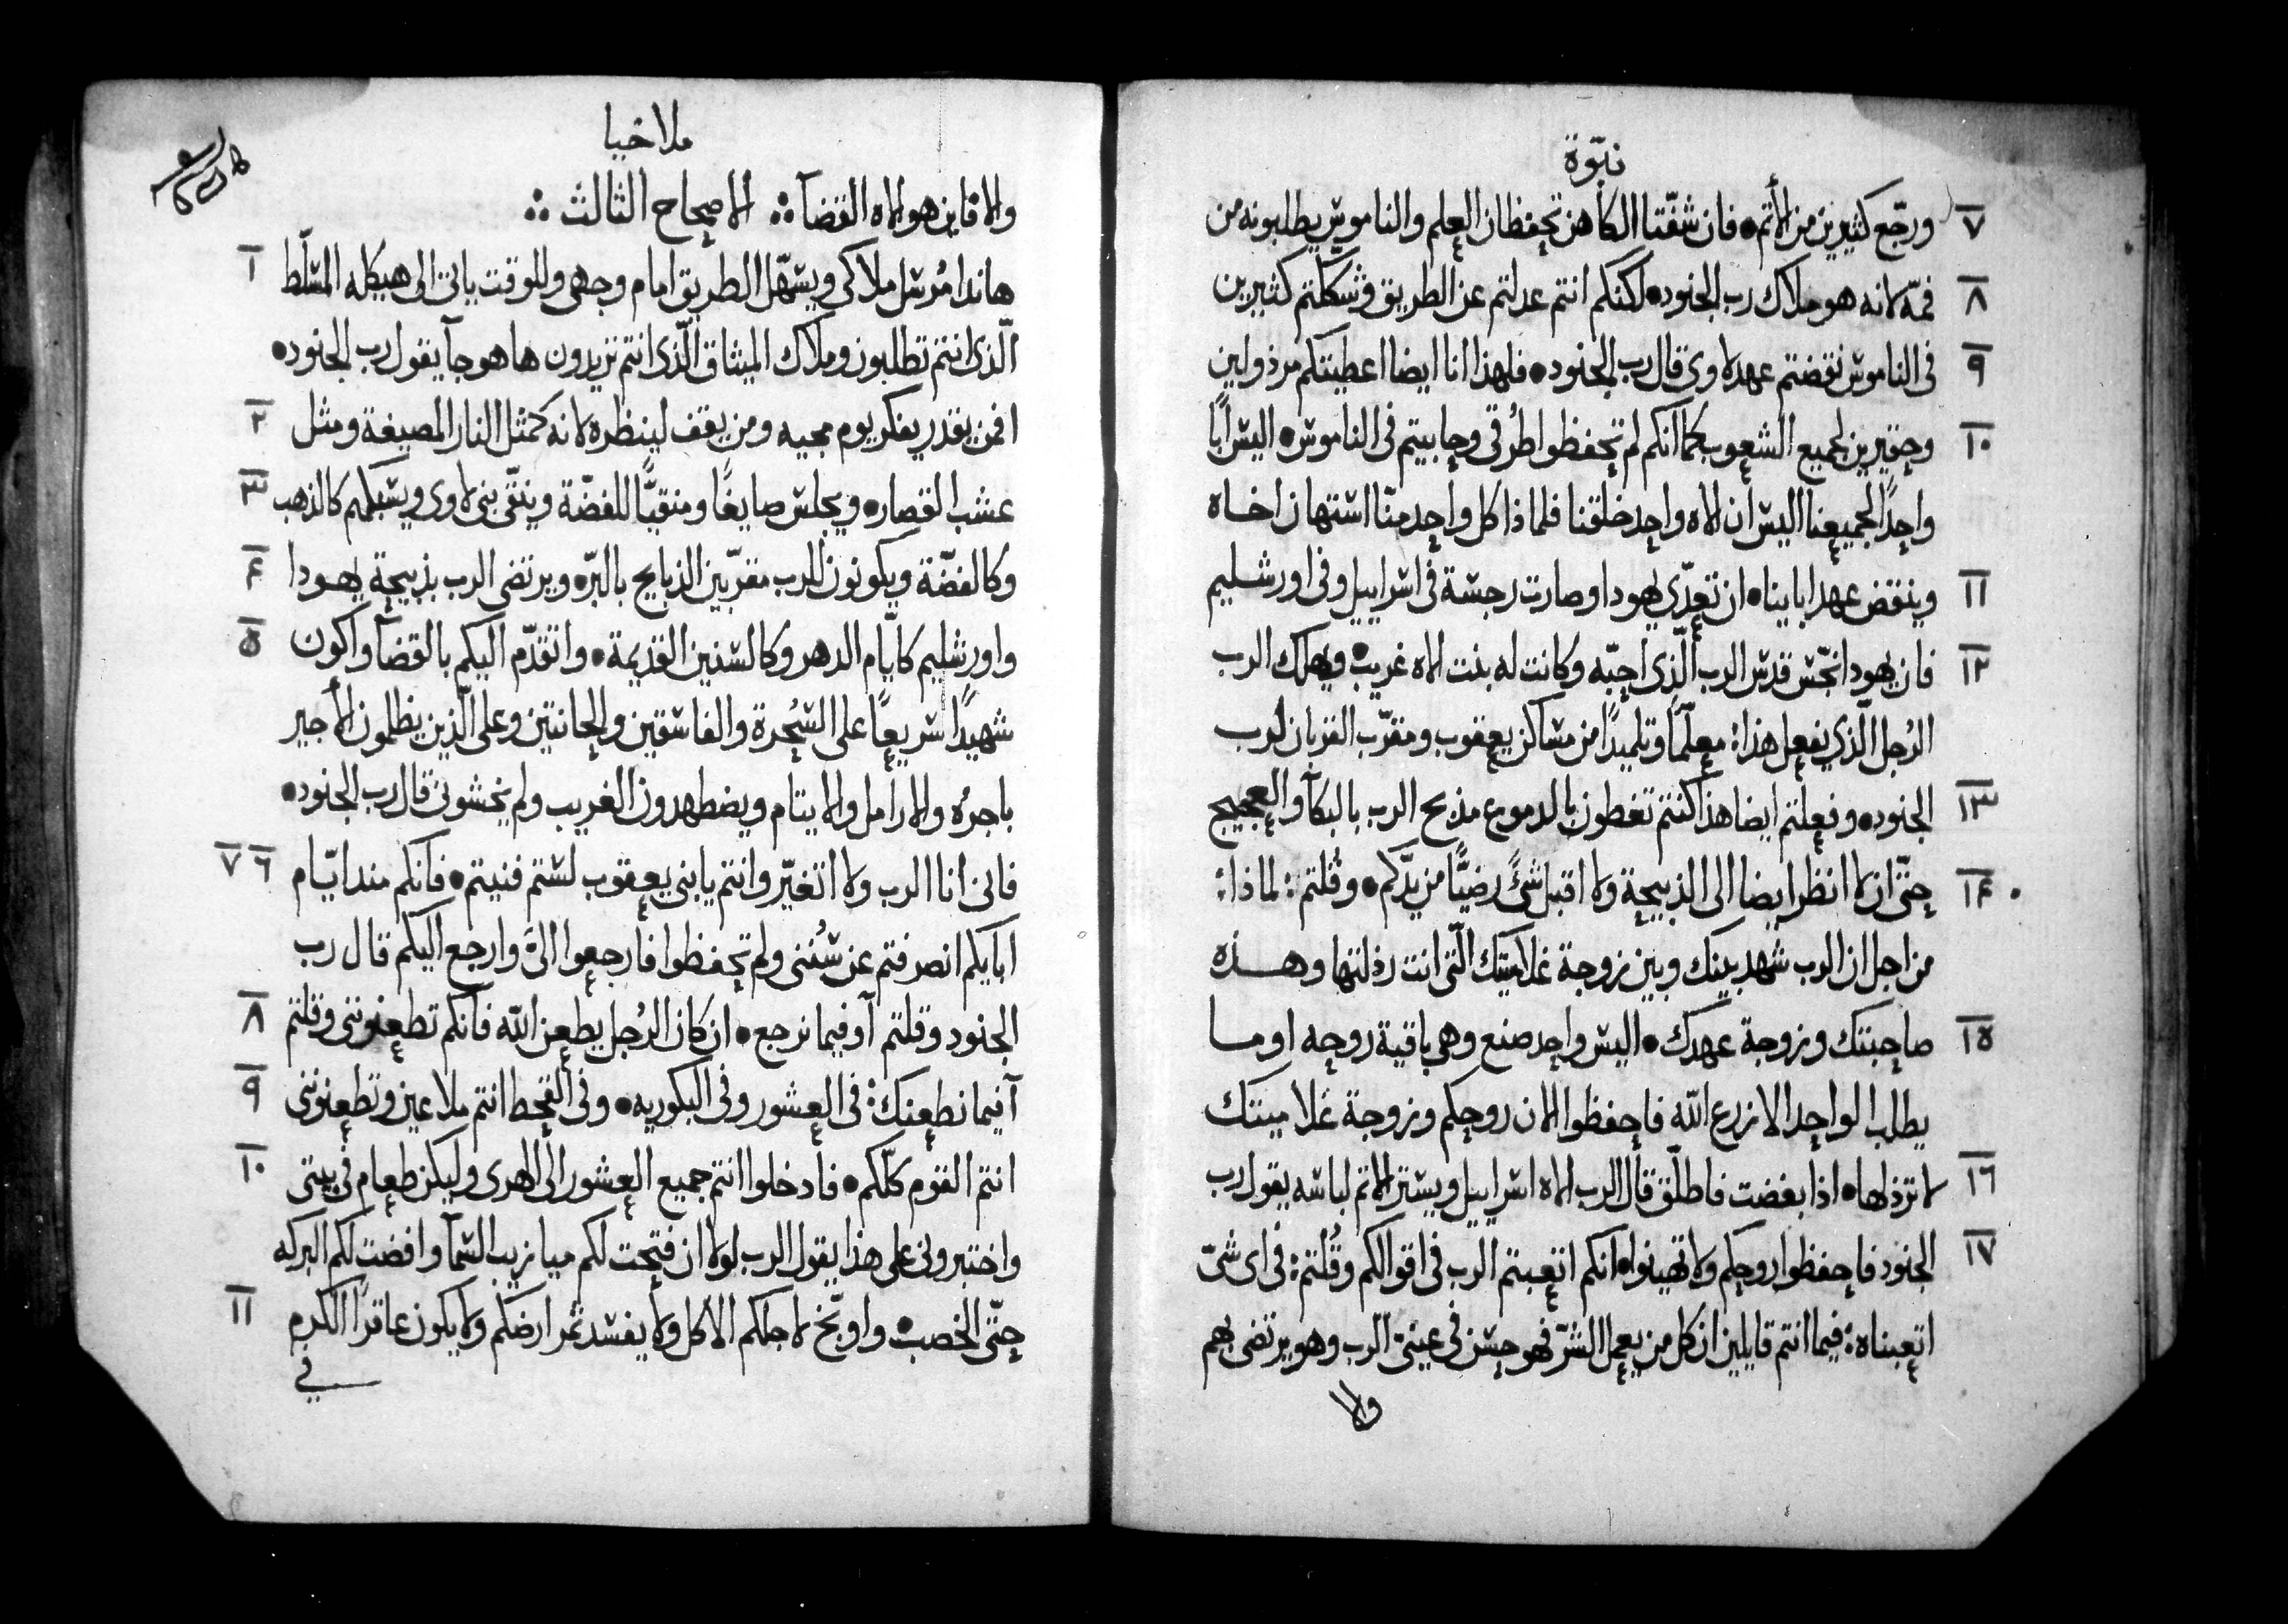 نبوّة
٧ ورجّع كثيرين من الأثم • فان شفّتا الكاهن تحفظان العلم والناموس يطلبونه من
٨ فمّه لانه هو ملاك رب الجنود • لكنكم انتم عدلتم عن الطريق وشكّلتم كثيرين
٩ فى الناموس نقضتم عهد لاوى قال رب الجنود • فلهذا انا ايضا اعطيتكم مرذولين
١٠ وحقيرين لجميع الشعوب كما انكم لم تحفظوا طُرقى وحابيتم فى الناموس • اليس ابًا
واحدًا لجميعنا اليس ان الاه واحد خلقنا فلماذا كل واحد منّا استهان اخاه
١١ وينقض عهد اباينا • ان تعدّى يهودا وصارت رجسة فى اسراييل وفى اورشليم
١٢ فان يهودا نجّس قدس الرب الّذى احبّه وكانت له بنت الاه غريب • ويهلك الرب
الرُجل الّذي يفعل هذا: معلّمًا وتلميدًا من مساكن يعقوب ومقرّب القربان لرب
١٣ الجنود • وفعلتم ايضا هذا كنتم تغطون بالدموع مذبح الرب بالبكآ والعجيج
حتّى ان لا انظر ايضا الى الذبيحة ولا اقبل شئً رضيًّا من يدّكم • وقُلتم: لماذا:
١٤ من اجل ان الرب شهد بينك وبين زوجة غلاميتك الّتى انت رذلتها وهـذه
١٥ صاحبتك وزوجة عهدك • اليس واحد صنع وهى باقية روحه او مـا
يطلب الواحد الا زرع اللّه فاحفظوا الان روحكم وزوجة غلاميتك
١٦ لا ترذلها • اذا بغضت فاطلّق قال الرب الاه اسراييل ويستر الاثم لباسه يقول رب
١٧ الجنود فاحفظوا روحكم ولا تهينوا • انكم اتعبتم الرب فى اقوالكم وقُلتم: فى اى شىّ
اتعبناه: فيما انتم قايلين ان كل من يعمل الشرّ فهو حسن فى عينىّ الرب وهو يرتضى بهم
والا
ملاخيا
والا فاين هو الاه القضآ ∴ الاصحاح الثالث ∴
١ هانذا مُرسل ملاكى ويسهّل الطريق امام وجهى وللوقت ياتى الى هيكله المسلّط
الّذى انتم تطلبون وملاك الميثاق الّذى انتم تريدون ها هو جآ يقول رب الجنود •
٢ افمن يقدر يفكر يوم مجيه ومن يقف لينظره لانه كمثل النار المصيغة ومثل
٣ عشب القصار • ويجلس صايغًا ومنقيًّا للفضّة وينقّى بنى لاوى ويسبكهم كالذهب
٤ وكالفضّة ويكونون للرب مقرّبين الذبايح بالبرّ • ويرتضى الرب بذبيحة يهودا
٥ واورشليم كايّام الدهر وكالسنين القديمة • واتقدّم اليكم بالقضآ واكون
شهيدًا سريعًا على السُحرة والفاسقين والحانثين وعلى الّذين يظلمون الأجير
باجرُه والارامل والايتام ويضطهدون الغريب ولم يخشونى قال رب الجنود •
٦ ٧ فانى انا الرب ولا اتغيّر وانتم يا بنى يعقوب لستم فنيتم • فانكم منذ ايّام
ابايكم انصرفتم عن سُننى ولم تحفظوا فارجعوا الىَّ وارجع اليكم قال رب
٨ الجنود وقلتم آو فيما نرجع • ان كان الرُجل يطعن اللّه فانكم تطعنوننى وقلتم
٩ آفيما نطعنك: فى العشور وفى البكوريه • وفى القحط انتم ملاعين وتطعنوننى
١٠ انتم القوم كلّكم • فادخلوا انتم جميع العشور الى الهرى وليكن طعام فى بيتى
واختبرونى على هذا يقول الرب لولا ان فتحت لكم ميازيب السمآ وافضت لكم البركه
١١ حتّى الخصب • واوبّخ لاجلكم الاكل ولا يفسد ثمر ارضكم ولا يكون عاقرًا الكرم
في